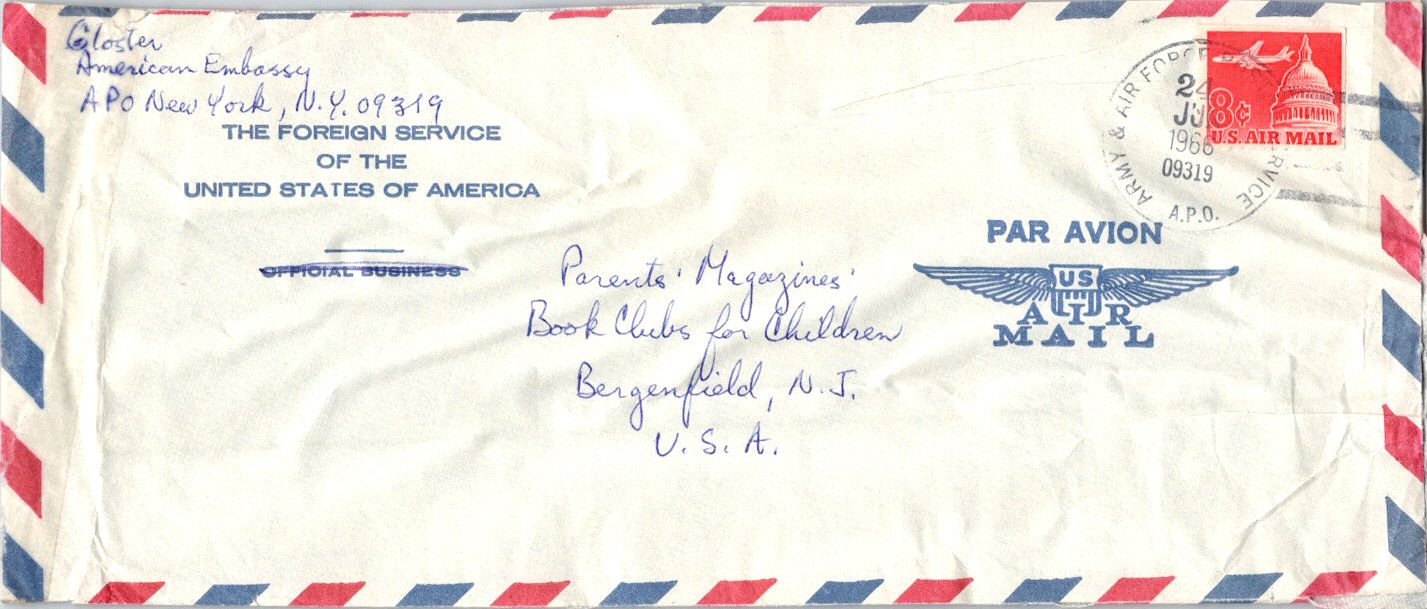 Gloster
American Embassy
APO New York, N.Y. 09319
THE FOREIGN SERVICE
OF THE
UNITED STATES OF AMERICA
OFFICIAL BUSINESS
Parents' Magazines'
Book Clubs for Children
Bergenfield, N.J.
U.S.A.
PAR AVION
US
AIR
MAIL
ARMY & AIR FORCE SERVICE
24
1966
09319
A.P.O.
8¢
U.S. AIR MAIL